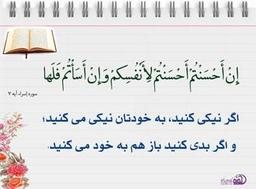 إِنْ أَحْسَنْتُمْ أَحْسَنْتُمْ لِأَنْفُسِكُمْ وَإِنْ أَسَأْتُمْ فَلَها
سوره إسراء، آیه ۷
اگر نیکی کنید، به خودتان نیکی می کنید؛
و اگر بدی کنید باز هم به خود می کنید.